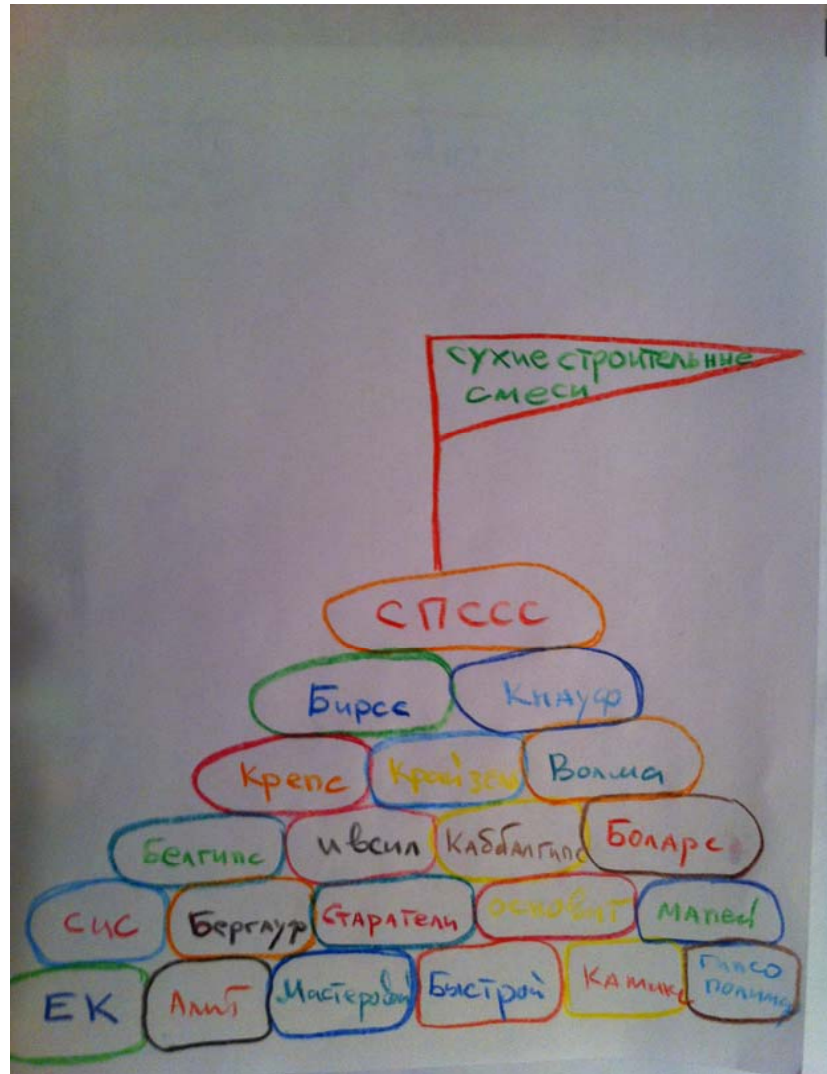 сухие строительные
смеси
СПССС
Бирсс Кнауф
Крепс Крайзель Волма
Белгипс Ивсил Каббалгипс Боларс
СИС Бергауф Старатели основит мапей
ЕК Алит Мастеровой Быстрой Камикс Гипсо
полимер